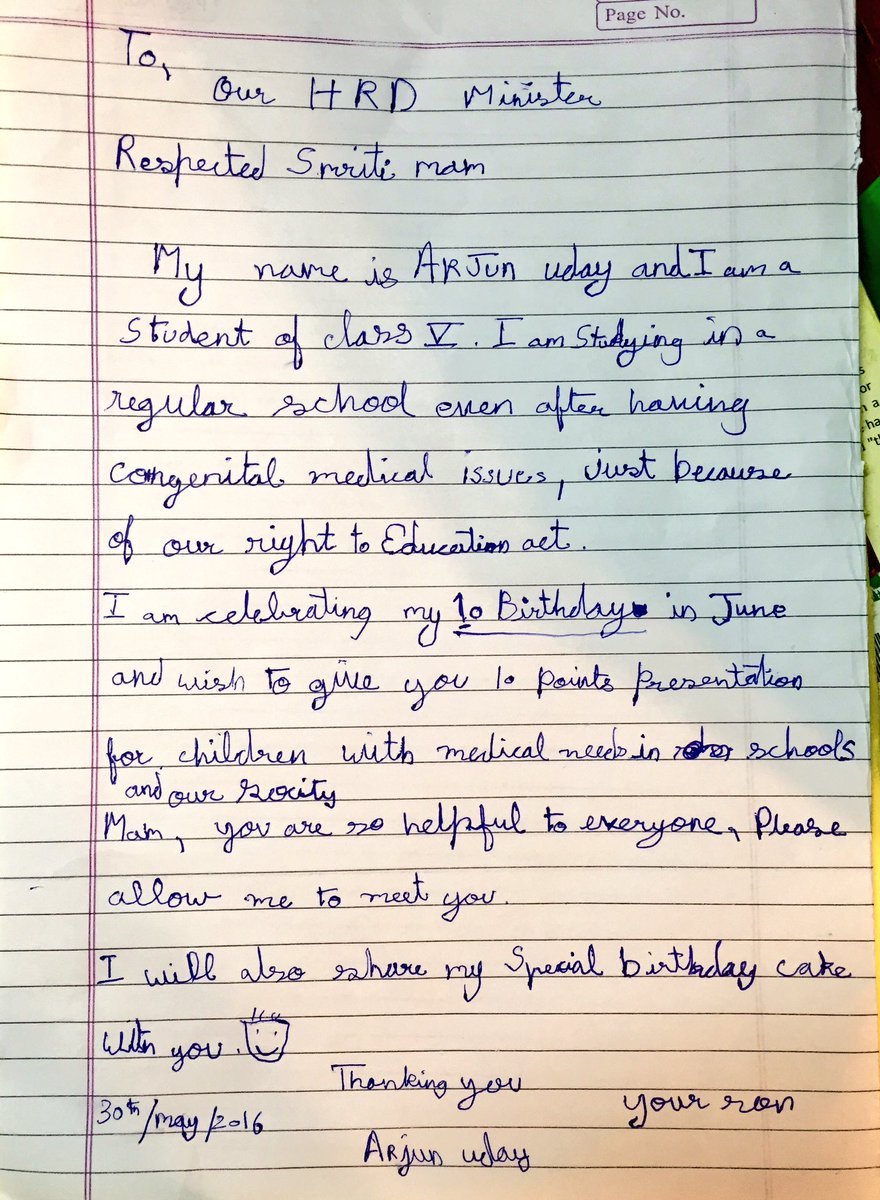 Page No.
To,
Our HRD Minister
Respected Smriti mam
My name is ARJun uday and I am a
Student of class V. I am Studying in a
regular school even after having
Congenital medical issues, just because
of our right to Education act.
I am celebrating my 10 Birthday in June
and wish to give you 10 points presentation
for children with medical needs in schools
and our socity
Mam, you are so helpful to everyone, Please
allow me to meet you.
I will also share my Special birthday cake
with you.
Thanking you
your son
30th/may/2016
ARjun uday